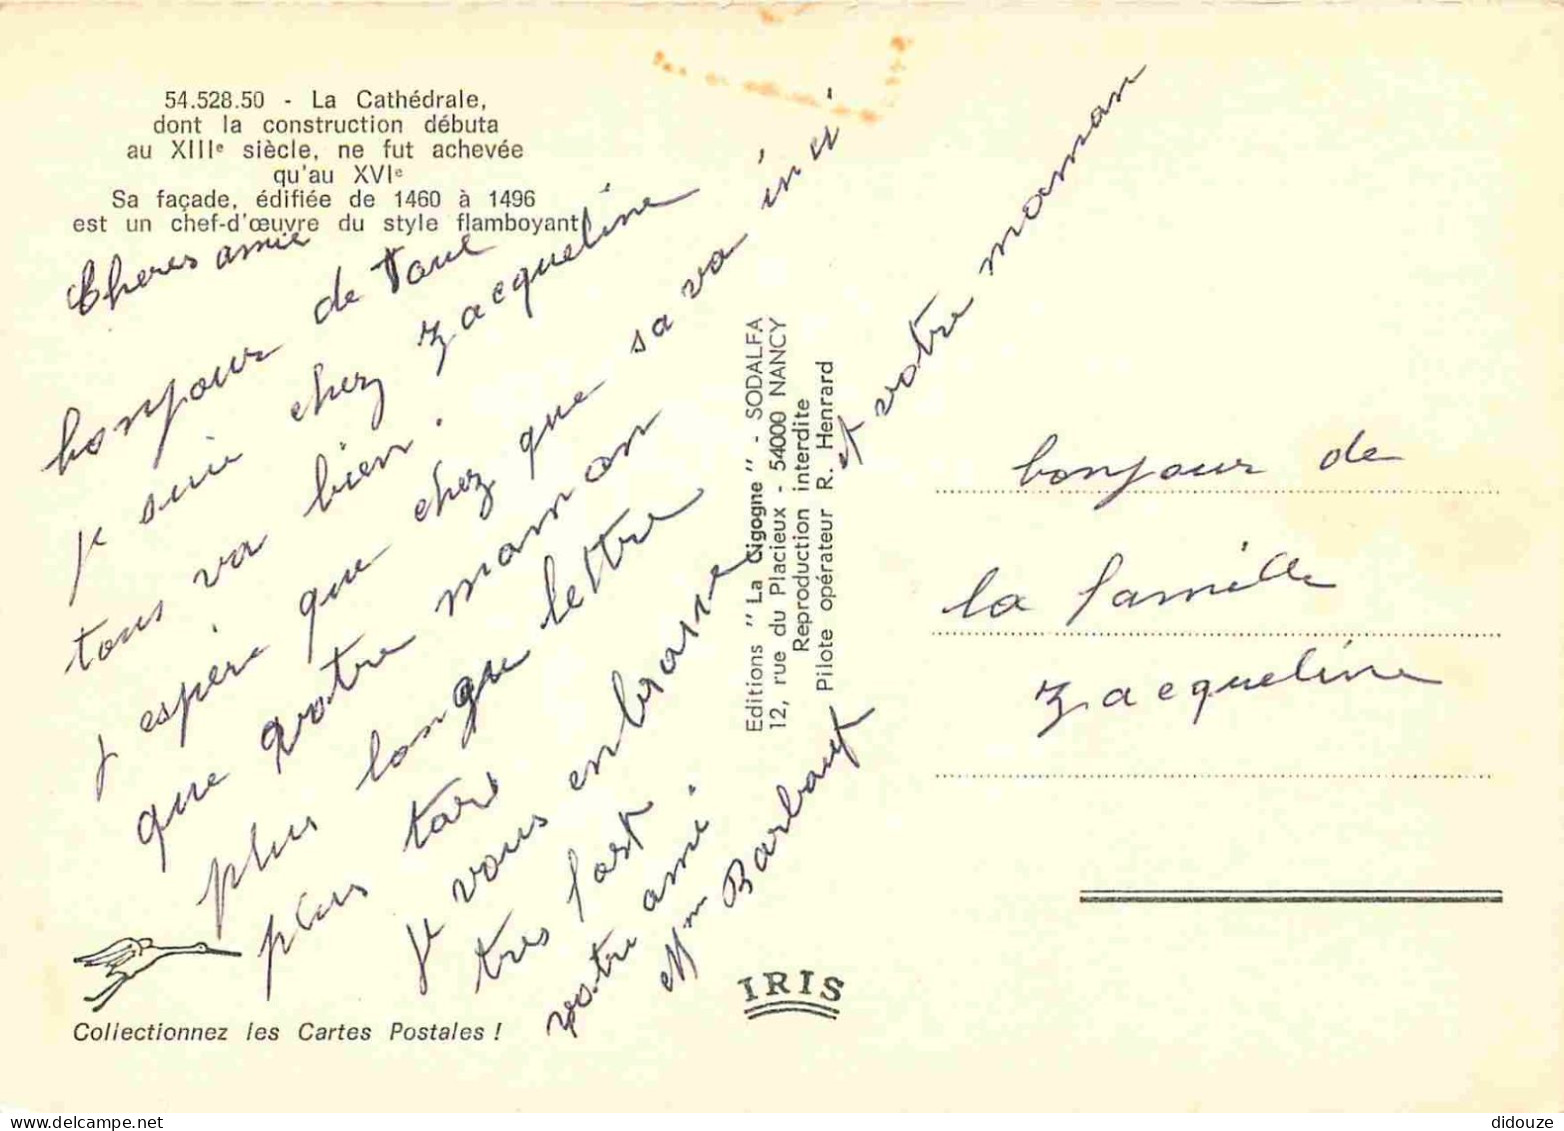 54.528.50 - La Cathédrale,
dont la construction débuta
au XIIIe siècle, ne fut achevée
qu'au XVIe
Sa façade, édifiée de 1460 à 1496
est un chef-d'œuvre du style flamboyant
Cheres amie
bonjour de toul
je suie chez Zacqueline
tous va bien.
j espère que chez que sa va
que votre maman
plus longue lettre
plus tard
je vous enbrasse
très fort.
votre amie.
Mme Barbaut
et votre maman
Editions "La Cigogne" - SODALFA
12, rue du Placieux - 54000 NANCY
Reproduction interdite
Pilote opérateur R. Henrard
bonjour de
la famille
Zacqueline
IRIS
Collectionnez les Cartes Postales !
delcampe.net
didouze